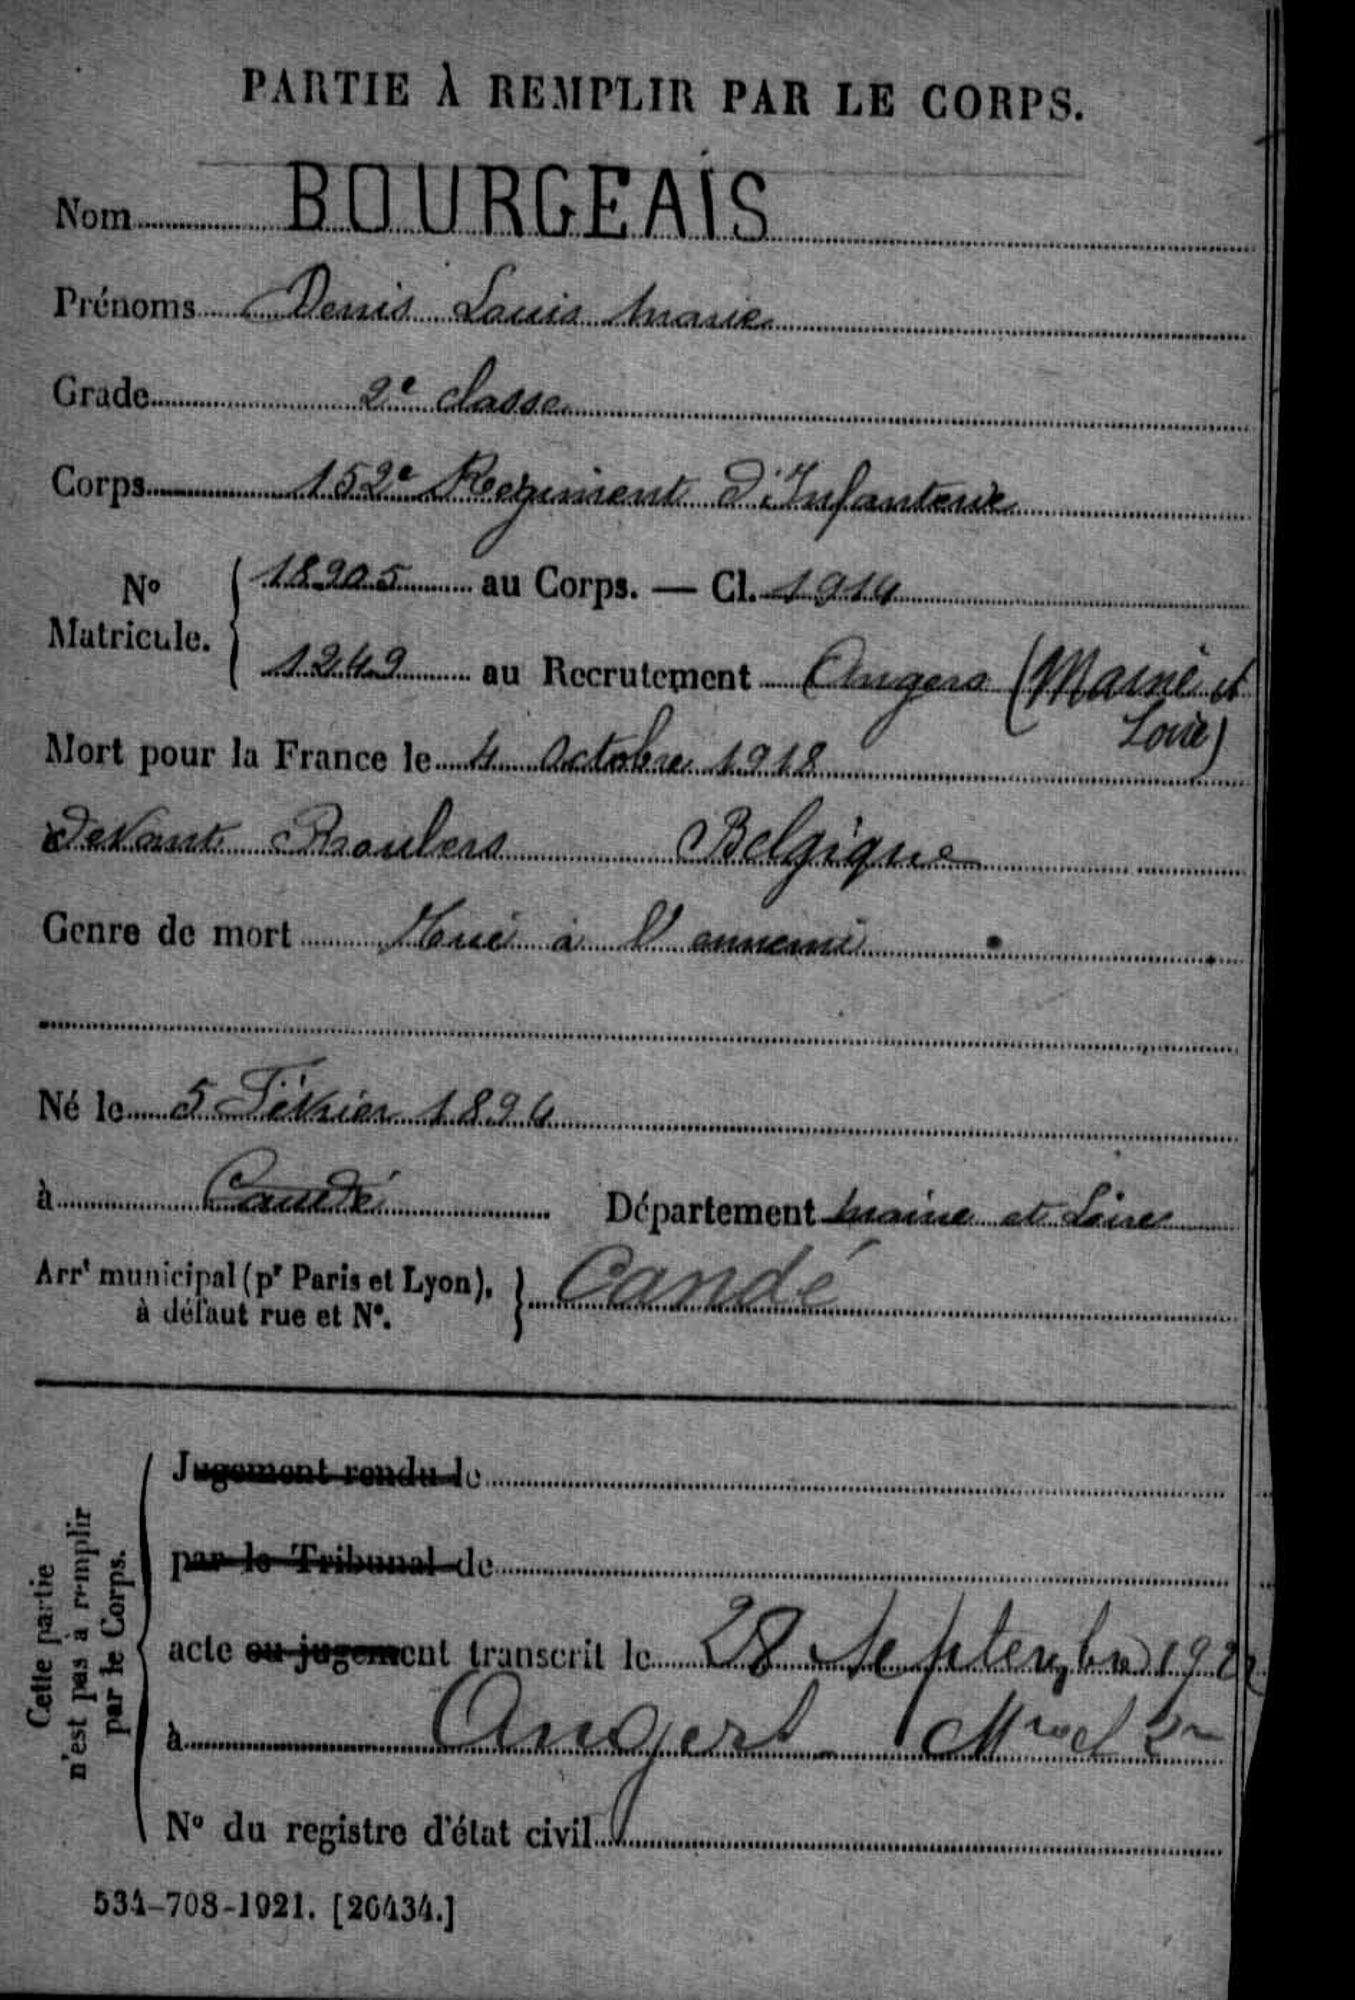 PARTIE À REMPLIR PAR LE CORPS.
Nom BOURGEAIS
Prénoms Denis Louis Marie
Grade 2e classe
Corps 152e Régiment d'Infanterie
No Matricule. 18905 au Corps. — Cl. 1914
1249 au Recrutement Angers (Maine et Loire)
Mort pour la France le 4 Octobre 1918
devant Roulers Belgique
Genre de mort Tué à l'ennemi
Né le 5 Février 1894
à Candé Département Maine et Loire
Arrt municipal (pr Paris et Lyon), à défaut rue et No. Candé
Cette partie n'est pas à remplir par le Corps.
Jugement rendu le
par le Tribunal de
acte ou jugement transcrit le 28 Septembre
à Angers
No du registre d'état civil
534-708-1921. [26434.]